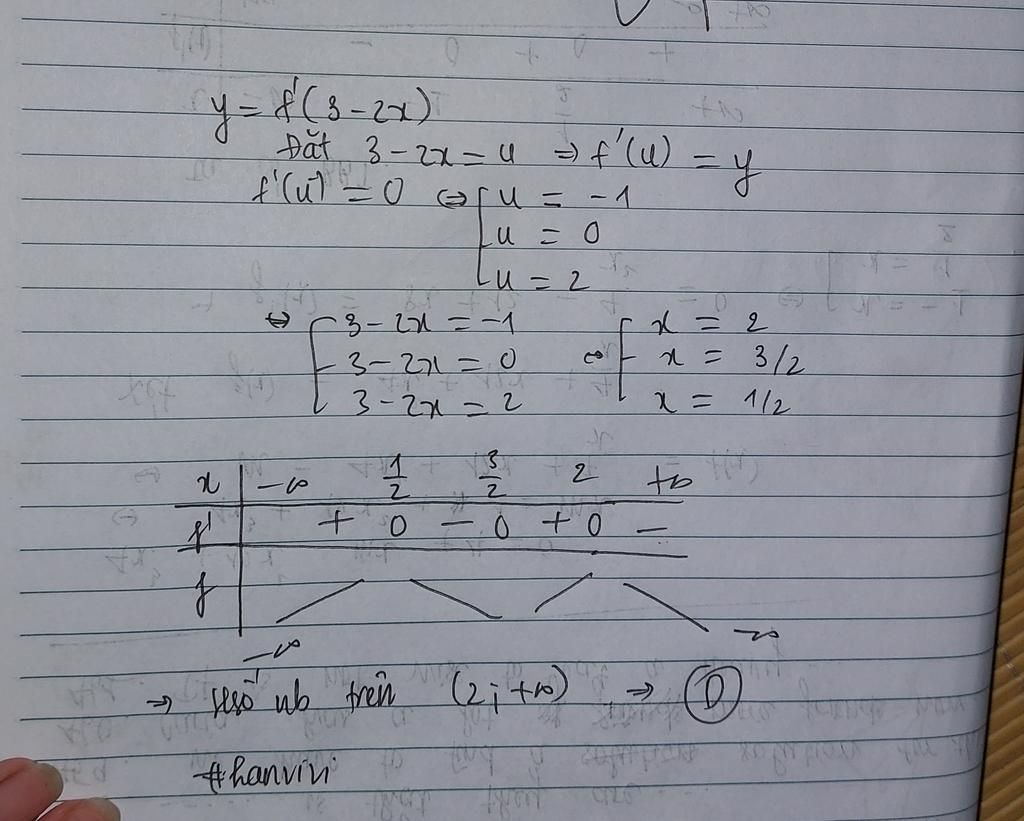 y = f'(3 - 2x)
Đặt 3 - 2x = u ⇒ f'(u) = y
f'(u) = 0 ⇔ [ u = -1
u = 0
u = 2
⇔ [ 3 - 2x = -1 ⇔ [ x = 2
3 - 2x = 0 x = 3/2
3 - 2x = 2 x = 1/2
x -∞ 1/2 3/2 2 +∞
f' + 0 - 0 + 0 -
f
-∞ -∞
⇒ Hsố nb trên (2; +∞) ⇒ D
#hanvivi